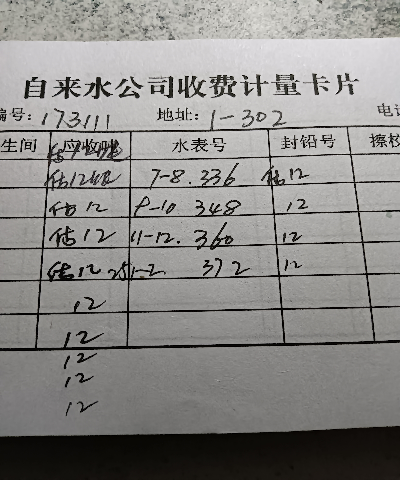 自来水公司收费计量卡片
编号: 173111 地址: 1-302 电话
生间 应收 水表号 封铅号 擦校
估12吨 7-8. 336 估12
估12 9-10 348 12
估12 11-12. 360 12
估12 25 1-2 372 12
12
12
12
12
12